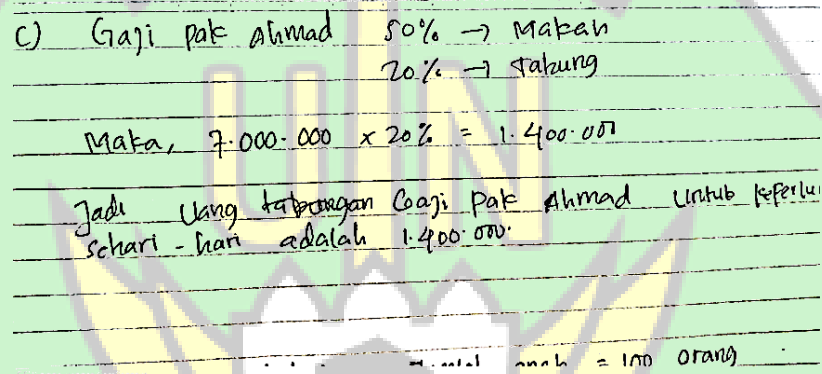 c) Gaji pak Ahmad 50% → Makan
20% → Tabung
Maka, 7.000.000 x 20% = 1.400.000
Jadi Uang tabungan Gaji pak Ahmad untuk keperlu
sehari - hari adalah 1.400.000.
= 100 orang
UIN